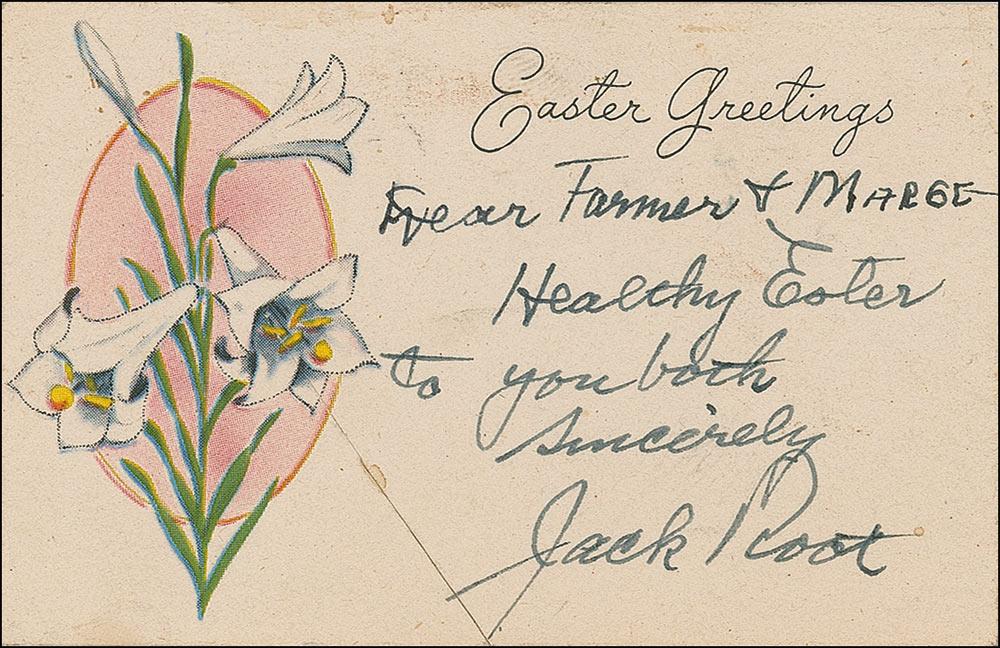 Easter Greetings
Dear Farmer & MARGE
Healthy Ester
to you both
Sincerely
Jack Root